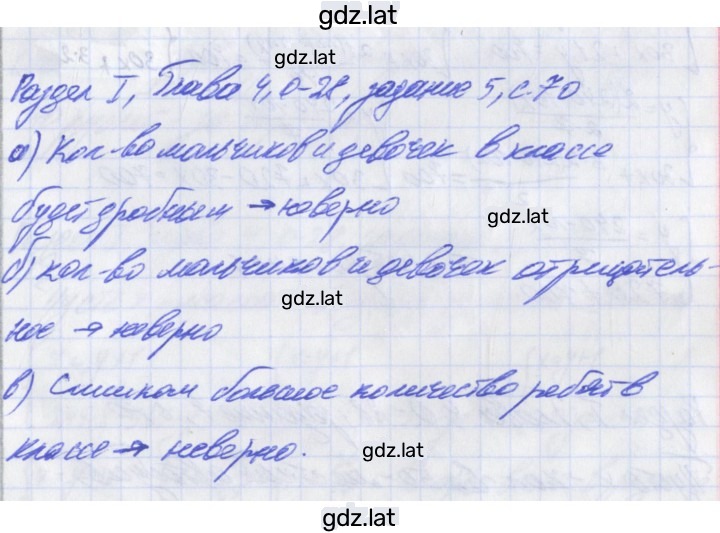 gdz.lat
gdz.lat
Раздел I, Глава 4, О-28, задание 5, с. 70
а) Кол-во мальчиков и девочек в классе
будет дробным → неверно
gdz.lat
б) кол-во мальчиков и девочек отрицатель-
gdz.lat
ное → неверно
в) Слишком большое количество ребят в
классе → неверно.
gdz.lat
gdz.lat